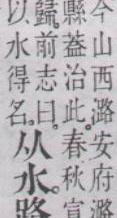 今山西潞安府潞
縣。葢治此。春秋宣
歸。前志曰。
以水得名。
从水。路